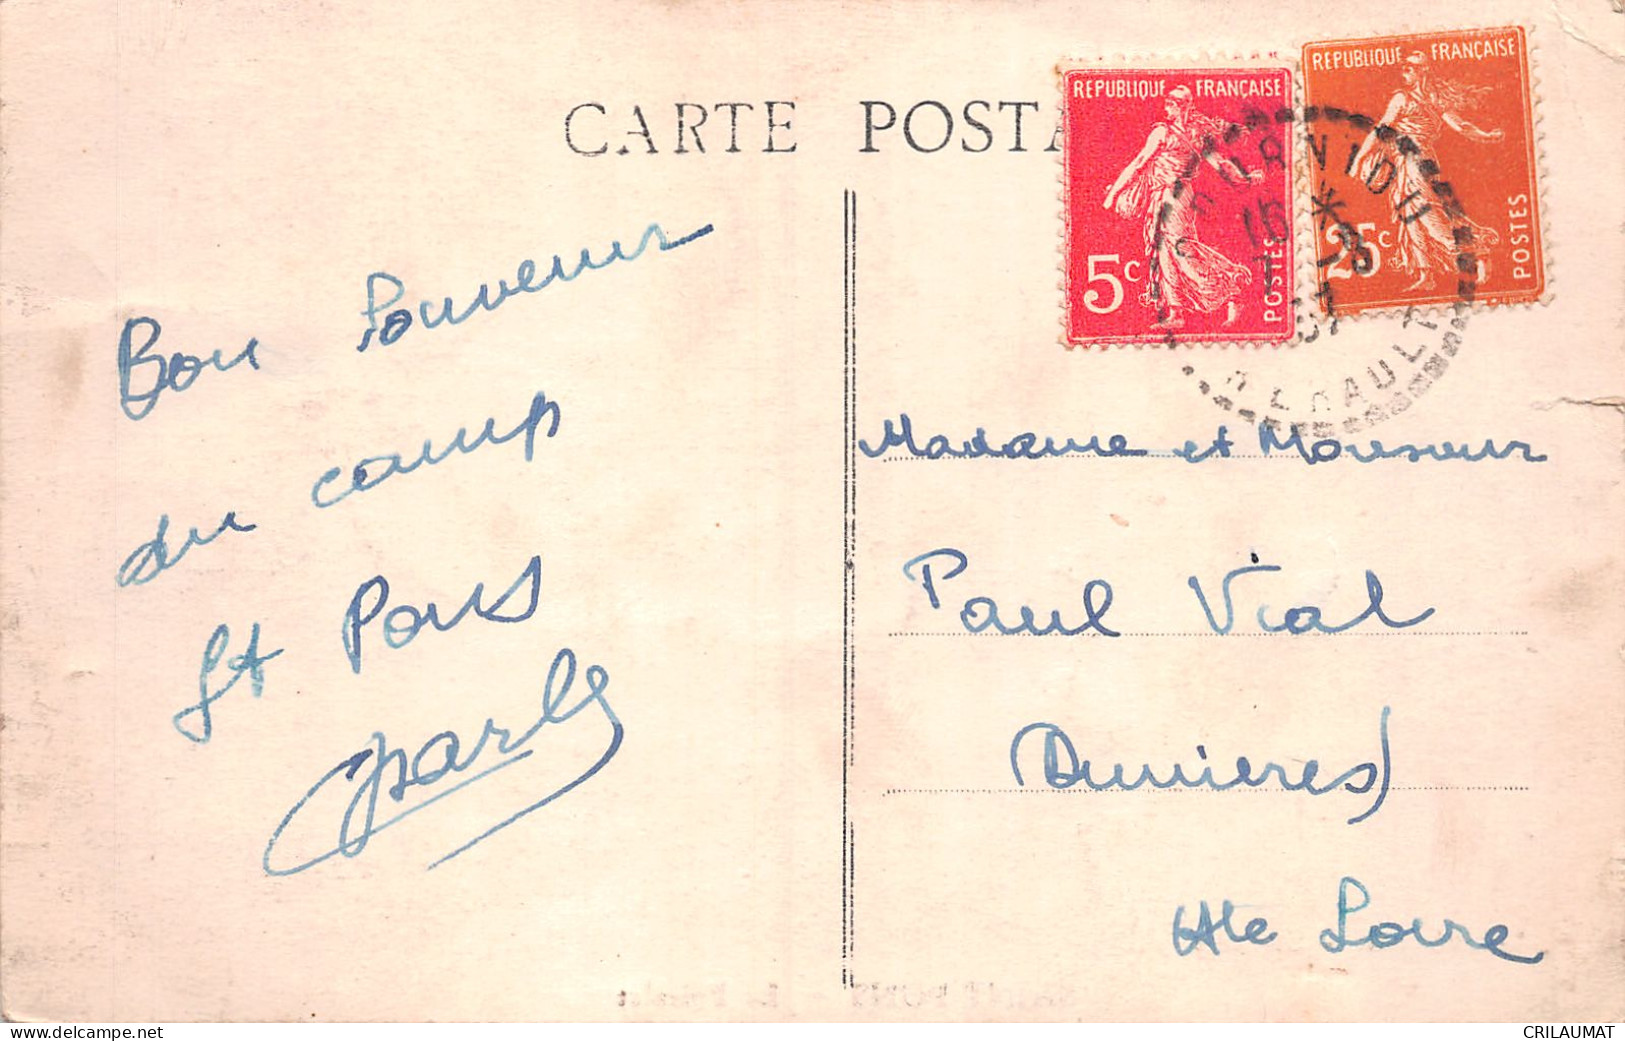 CARTE POSTA
REPUBLIQUE FRANÇAISE
5c
POSTES
REPUBLIQUE FRANÇAISE
25c
POSTES
HERAULT
Bon Souvenir
du camp
St Pons
Charles
Madame et Monsieur
Paul Vial
Dunières
Hte Loire
CRILAUMAT